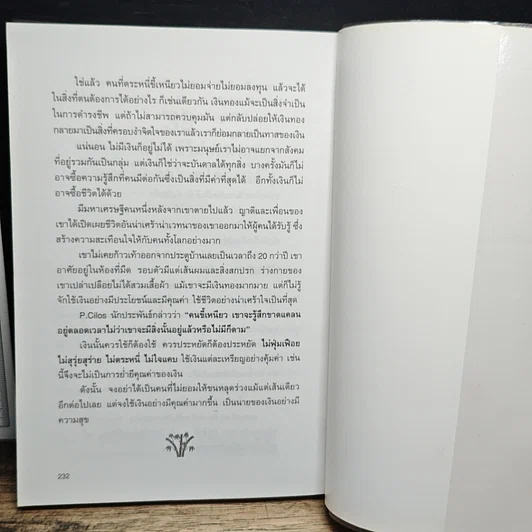 ใช่แล้ว คนที่ตระหนี่ขี้เหนียวไม่ยอมจ่ายไม่ยอมลงทุน แล้วจะได้
ในสิ่งที่ตนต้องการได้อย่างไร ก็เช่นเดียวกัน เงินทองแม้จะเป็นสิ่งจำเป็น
ในการดำรงชีพ แต่ถ้าไม่สามารถควบคุมมัน แต่กลับปล่อยให้เงินทอง
กลายมาเป็นสิ่งที่ครอบงำจิตใจของเราแล้วเราก็ย่อมกลายเป็นทาสของเงิน
แน่นอน ไม่มีเงินก็อยู่ไม่ได้ เพราะมนุษย์เราไม่อาจแยกจากสังคม
ที่อยู่รวมกันเป็นกลุ่ม แต่เงินก็ใช่ว่าจะบันดาลได้ทุกสิ่ง บางครั้งมันก็ไม่
อาจซื้อความรู้สึกที่คนมีต่อกันซึ่งเป็นสิ่งที่มีค่าที่สุดได้ อีกทั้งเงินก็ไม่
อาจซื้อชีวิตได้ด้วย
มีมหาเศรษฐีคนหนึ่งหลังจากเขาตายไปแล้ว ญาติและเพื่อนของ
เขาได้เปิดเผยชีวิตอันน่าเศร้าน่าเวทนาของเขาออกมาให้ผู้คนได้รับรู้ ซึ่ง
สร้างความสะเทือนใจให้กับคนทั้งโลกอย่างมาก
เขาไม่เคยก้าวเท้าออกจากประตูบ้านเลยเป็นเวลาถึง 20 กว่าปี เขา
อาศัยอยู่ในห้องที่มืด รอบตัวมีแต่เส้นผมและสิ่งสกปรก ร่างกายของ
เขาเปล่าเปลือยไม่ได้สวมเสื้อผ้า แม้เขาจะมีเงินทองมากมาย แต่ก็ไม่รู้
จักใช้เงินอย่างมีประโยชน์และมีคุณค่า ใช้ชีวิตอย่างน่าเศร้าใจเป็นที่สุด
P.Cilos นักประพันธ์กล่าวว่า “คนขี้เหนียว เขาจะรู้สึกขาดแคลน
อยู่ตลอดเวลาไม่ว่าเขาจะมีสิ่งนั้นอยู่แล้วหรือไม่มีก็ตาม”
เงินนั้นควรใช้ก็ต้องใช้ ควรประหยัดก็ต้องประหยัด ไม่ฟุ่มเฟือย
ไม่สุรุ่ยสุร่าย ไม่ตระหนี่ ไม่ใจแคบ ใช้เงินแต่ละเหรียญอย่างคุ้มค่า เช่น
นี้จึงจะไม่เป็นการย่ำยีคุณค่าของเงิน
ดังนั้น จงอย่าได้เป็นคนที่ไม่ยอมให้ขนหลุดร่วงแม้แต่เส้นเดียว
อีกต่อไปเลย แต่จงใช้เงินอย่างมีคุณค่ามากขึ้น เป็นนายของเงินอย่างมี
ความสุข
232